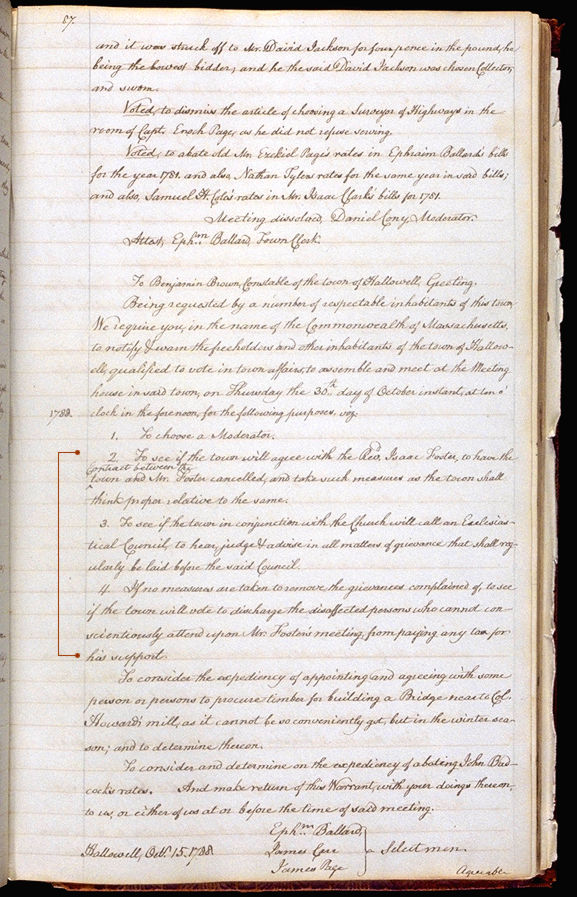 87.
and it was struck off to Mr. David Jackson for four pence in the pound, he
being the lowest bidder; and he the said David Jackson was chosen Collector,
and sworn.
Voted, to dismiss the article of choosing a Surveyor of Highways in the
room of Capt. Enoch Page, as he did not refuse serving.
Voted, to abate old Mr. Ezekiel Page's rates in Ephraim Ballard's bills
for the year 1781. and also, Nathan Tylers rates for the same year in said bills;
and also, Samuel H. Cole's rates in Mr. Isaac Clark's bills for 1781.
Meeting dissolved, Daniel Cony, Moderator.
Attest, Ephm Ballard, Town Clerk.
To Benjamin Brown, Constable of the town of Hallowell, Greeting.
Being requested by a number of respectable inhabitants of this town,
We require you, in the name of the Commonwealth of Massachusetts,
to notify & warn the freeholders and other inhabitants of the town of Hallow-
ell, qualified to vote in town affairs, to assemble and meet at the Meeting
house in said town, on Thursday the 30th day of October instant, at ten o'
1788. clock in the forenoon, for the following purposes, viz:
1. To choose a Moderator.
2. To see if the town will agree with the Revd. Isaac Foster, to have the
contract between the
town and Mr. Foster cancelled, and take such measures as the town shall
think proper relative to the same.
3. To see if the town in conjunction with the Church will call an Ecclesias-
tical Council, to hear, judge & advise in all matters of grievance that shall reg-
ularly be laid before the said Council.
4. If no measures are taken to remove the grievances complained of, to see
if the town will vote to discharge the disaffected persons who cannot con-
scientiously attend upon Mr. Foster's meeting, from paying any tax for
his support.
To consider the expediency of appointing and agreeing with some
person or persons to procure timber for building a Bridge near to Col.
Howard's mill, as it cannot be so conveniently got, but in the winter sea-
son; and to determine thereon.
To consider and determine on the expediency of abating John Bad-
cock's rates. And make return of this Warrant, with your doings thereon,
to us, or either of us at or before the time of said meeting.
Ephm Ballard,
Hallowell, Octr. 15. 1788 James Carr Selectmen.
James Page